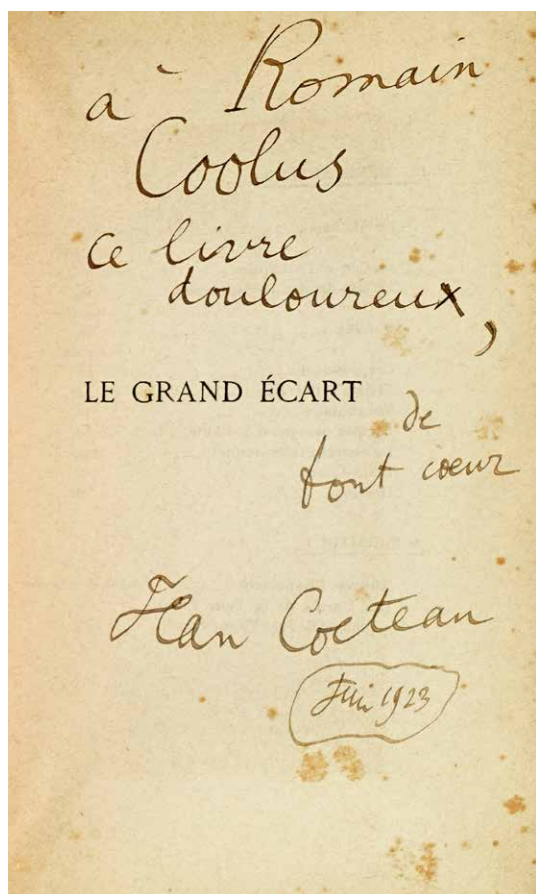 à Romain
Coolus
ce livre
douloureux,
LE GRAND ÉCART
de
tout cœur
Jean Cocteau
Juin 1923